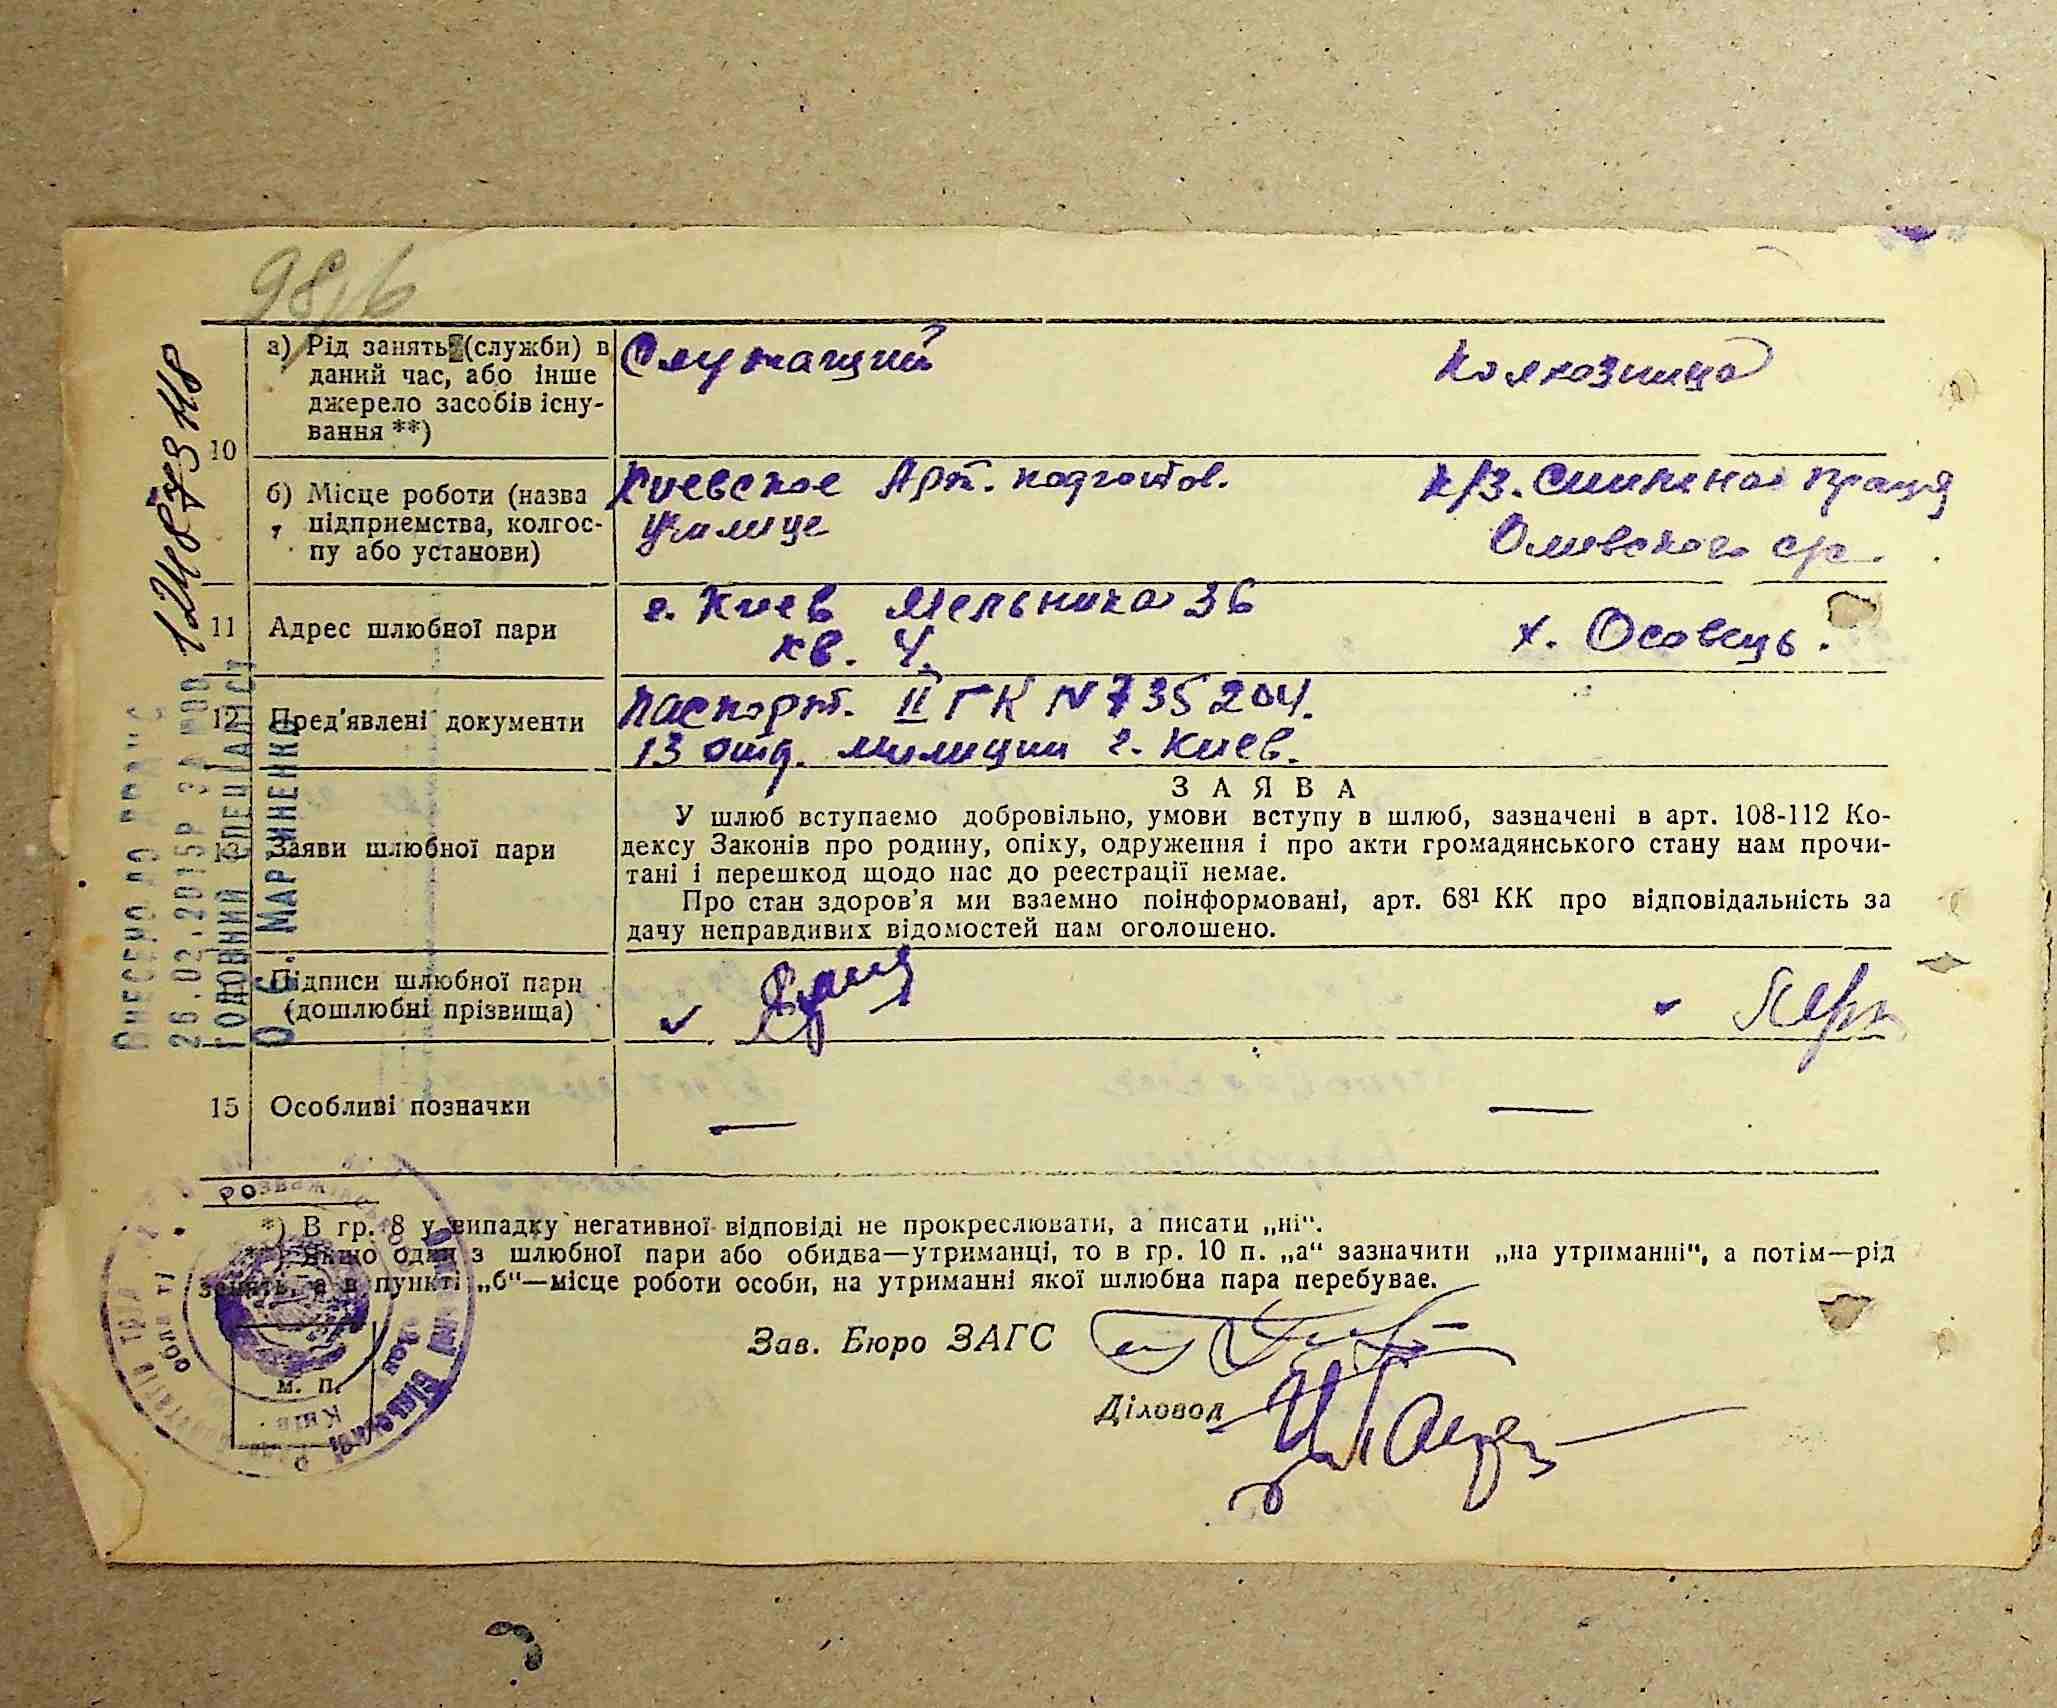 98/6
10 а) Рід занять (служби) в
даний час, або інше
джерело засобів існу-
вання **)
Служащий
Колхозница
б) Місце роботи (назва
підприємства, колгос-
пу або установи)
Киевское Арт. подготов.
училище
к/з. Спильна праця
с/с.
11 Адрес шлюбної пари
г. Киев Мельника 36
кв. 4.
х. Осовець.
12 Пред'явлені документи
Паспорт. II ГК N 735204.
13 отд. милиции г. Киев.
13 Заяви шлюбної пари
ЗАЯВА
У шлюб вступаємо добровільно, умови вступу в шлюб, зазначені в арт. 108-112 Ко-
дексу Законів про родину, опіку, одруження і про акти громадянського стану нам прочи-
тані і перешкод щодо нас до реєстрації немає.
Про стан здоров'я ми взаємно поінформовані, арт. 68¹ КК про відповідальність за
дачу неправдивих відомостей нам оголошено.
Підписи шлюбної пари
(дошлюбні прізвища)
15 Особливі позначки
— —
*) В гр. 8 у випадку негативної відповіді не прокреслювати, а писати „ні".
**) Якщо один з шлюбної пари або обидва—утриманці, то в гр. 10 п. „а" зазначити „на утриманні", а потім—рід
занять, а в пункті „б"—місце роботи особи, на утриманні якої шлюбна пара перебуває.
Зав. Бюро ЗАГС
Діловод
м. п.
ВНЕСЕНО ДО ДРАЦС
26.02.2015Р ЗА №00 124887348
ГОЛОВНИЙ СПЕЦІАЛІСТ
О. С. МАРТИНЕНКО